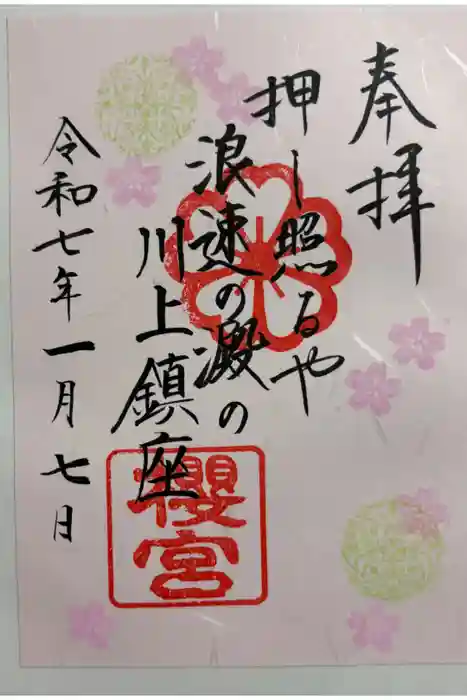 奉拝
押し照るや
浪速の澱の
川上鎮座
令和七年一月七日
櫻宮